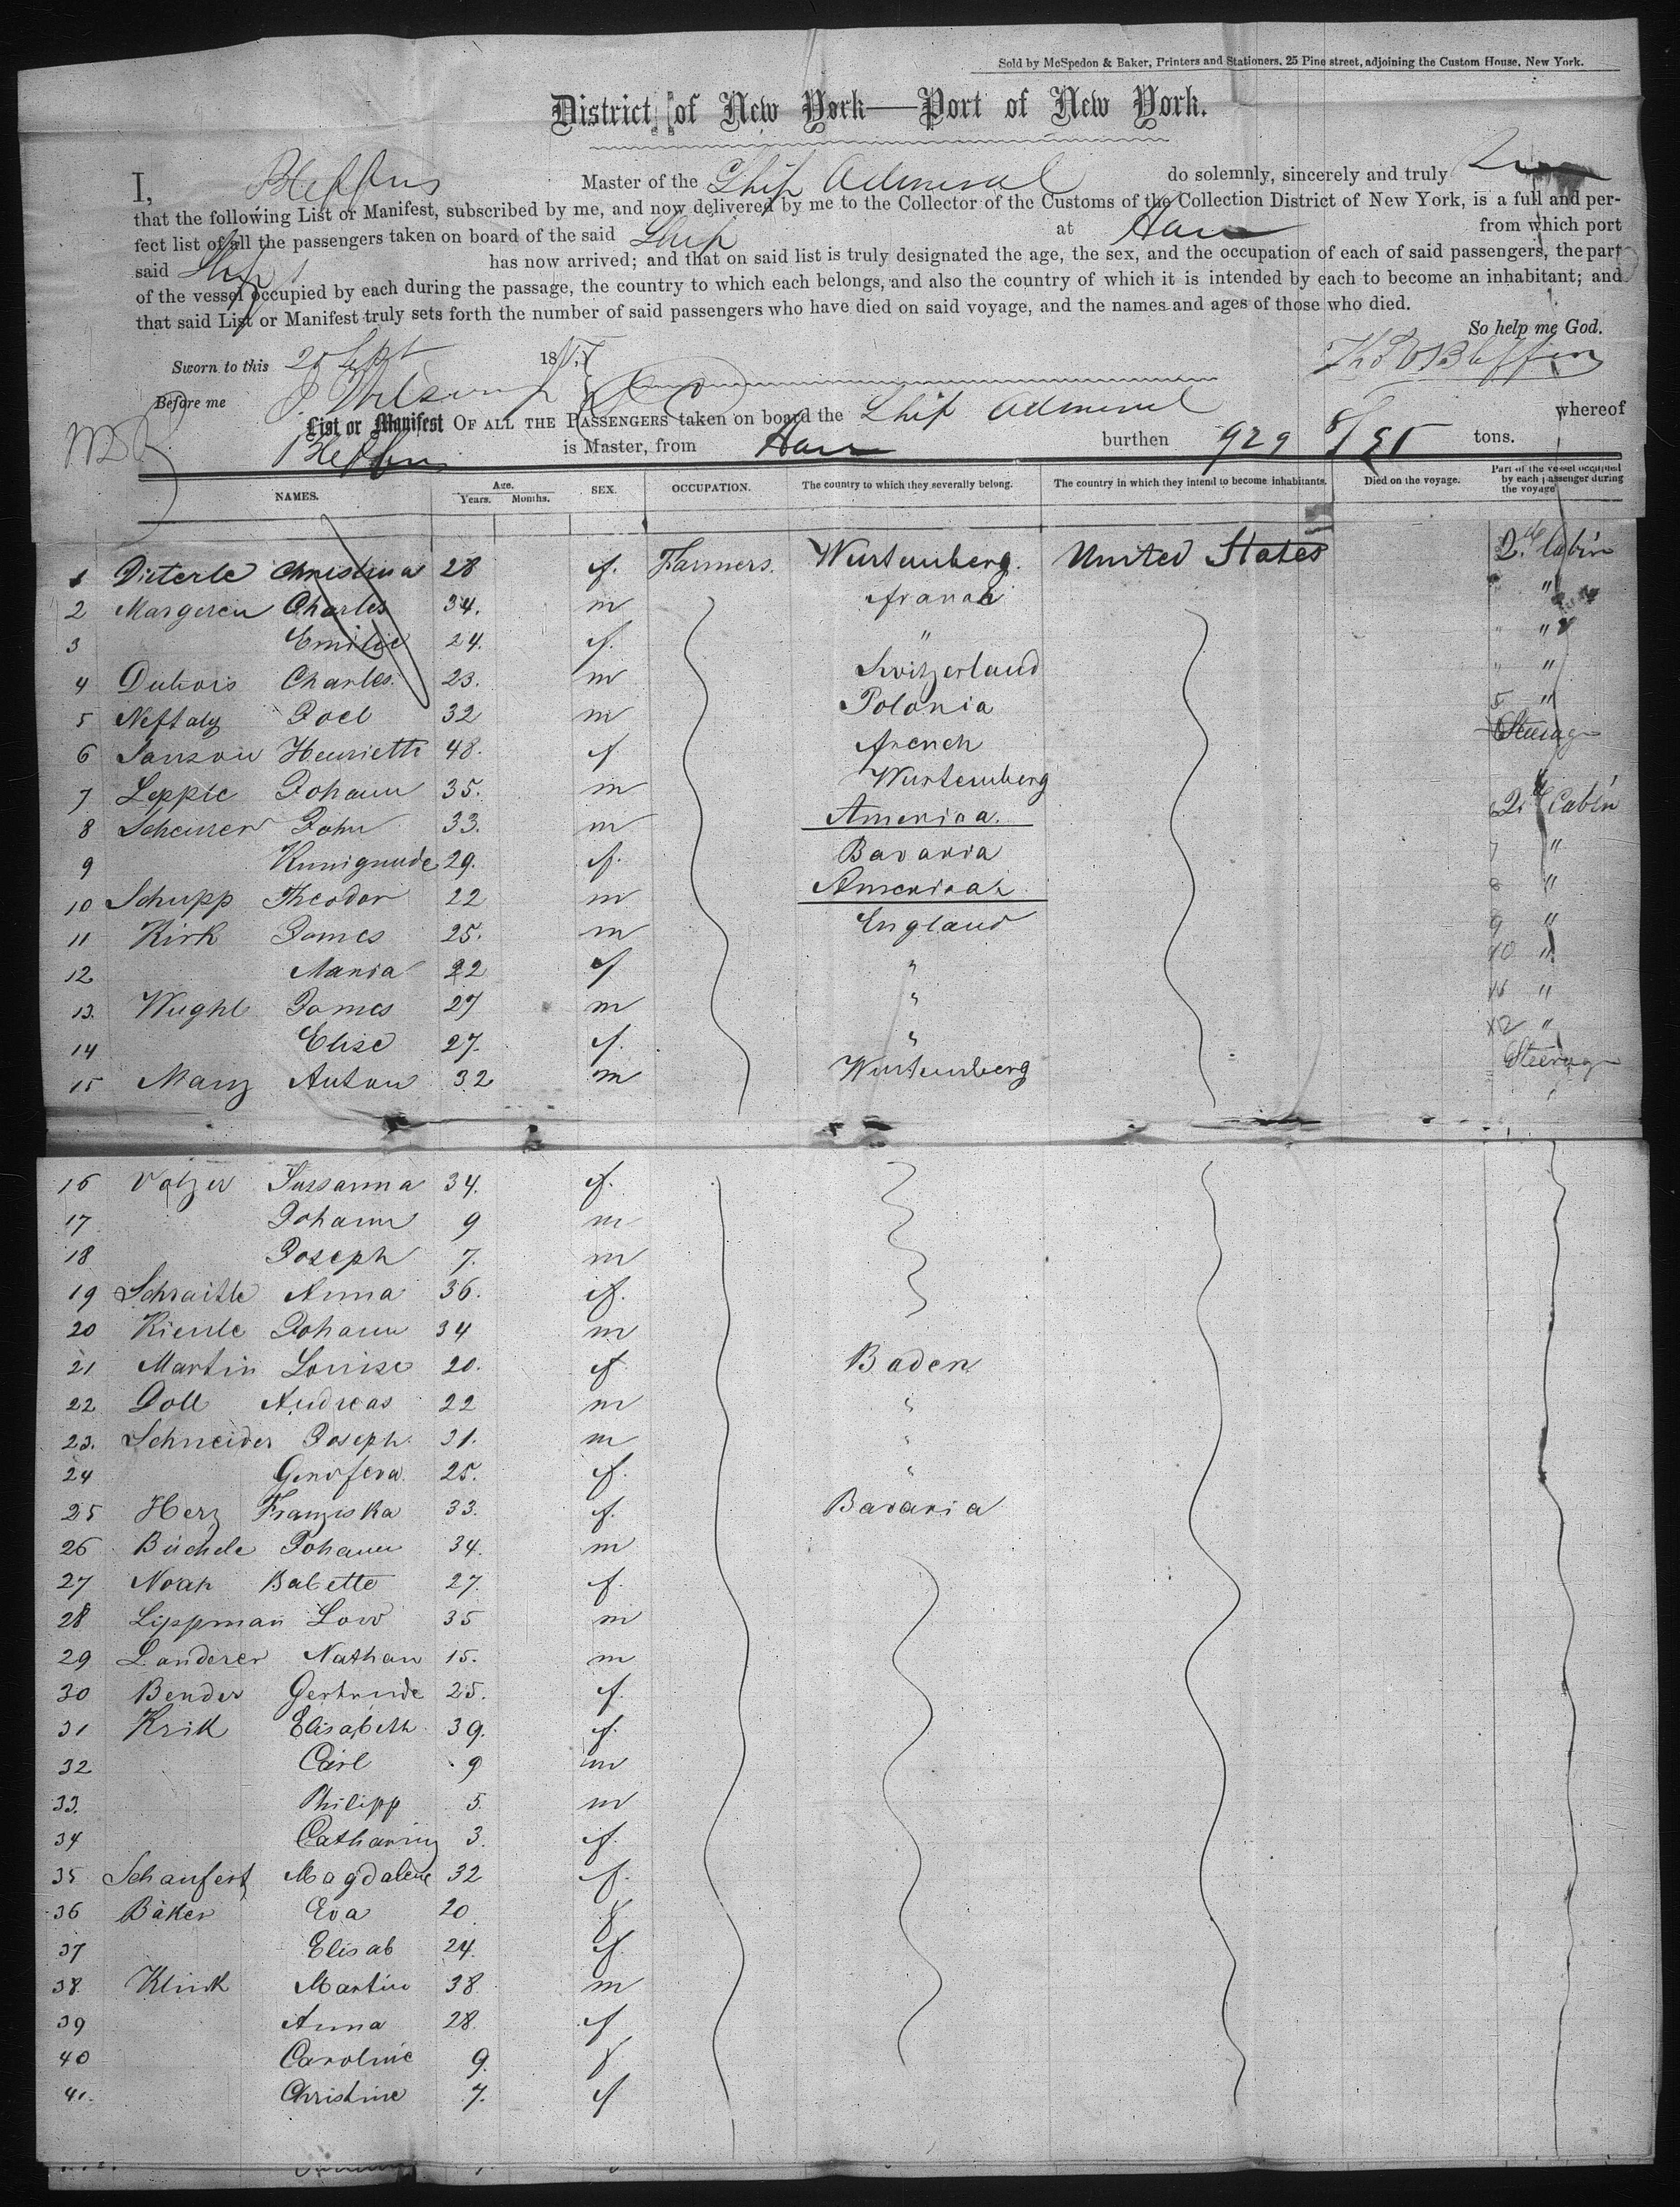 Sold by McSpedon & Baker, Printers and Stationers, 25 Pine street, adjoining the Custom House, New York.
District of New York—Port of New York.
I, Master of the Ship Admiral do solemnly, sincerely and truly
that the following List or Manifest, subscribed by me, and now delivered by me to the Collector of the Customs of the Collection District of New York, is a full and per-
fect list of all the passengers taken on board of the said Ship at Havre from which port
said Ship has now arrived; and that on said list is truly designated the age, the sex, and the occupation of each of said passengers, the part
of the vessel occupied by each during the passage, the country to which each belongs, and also the country of which it is intended by each to become an inhabitant; and
that said List or Manifest truly sets forth the number of said passengers who have died on said voyage, and the names and ages of those who died.
So help me God.
Sworn to this 25 Sept 18
Before me
List or Manifest OF ALL THE PASSENGERS taken on board the Ship Admiral whereof
is Master, from Havre burthen 929 8/95 tons.
NAMES. Age. Years. Months. SEX. OCCUPATION. The country to which they severally belong. The country in which they intend to become inhabitants. Died on the voyage. Part of the vessel occupied by each passenger during the voyage
1 Dieterle Christina 28 f. Farmers. Wurtemberg. United States 2d Cabin
2 Charles 34. m "
3 Emilie 24. f. " "
4 Dubois Charles. 23. m Switzerland "
5 Neftaly Joel 32 m Polonia 5 "
6 Janson Henriette 48. f French Steerage
7 Lepple Johann 35. m Wurtemberg "
8 Scheurer John 33. m America. 2d Cabin
9 Kunigunde 29. f. Bavaria 7 "
10 Schupp Theodor 22 m 8 "
11 Kirk James 25. m England 9 "
12 Maria 22 f " 10 "
13. James 27 m " "
14 Elise 27. f. " 12 "
15 Manz Anton 32 m Wurtemberg Steerage
16 Votzer Sussanna 34. f.
17 Johann 9 m
18 Joseph 7. m
19 Schraitle Anna 36. f.
20 Kienle Johann 34 m
21 Martin Louise 20. f Baden
22 Doll Andreas 22 m "
23. Schneider Joseph 31. m "
24 Genofeva 25. f. "
25 Herz Franziska 33. f. Bavaria
26 Büchele Johann 34. m
27 Noah Babette 27. f.
28 Lippman Low 35 m
29 Landerer Nathan 15. m
30 Bender Gertrude 25. f.
31 Krik Elisabeth 39. f.
32 Carl 9 m
33. Philipp 5. m
34 Catharina 3. f.
35 Schaufert Magdalene 32 f.
36 Bäker Eva 20 f
37 Elisab 24. f.
38. Klink Martin 38. m
39 Anna 28. f
40 Caroline 9. f
41. Christine 7. f